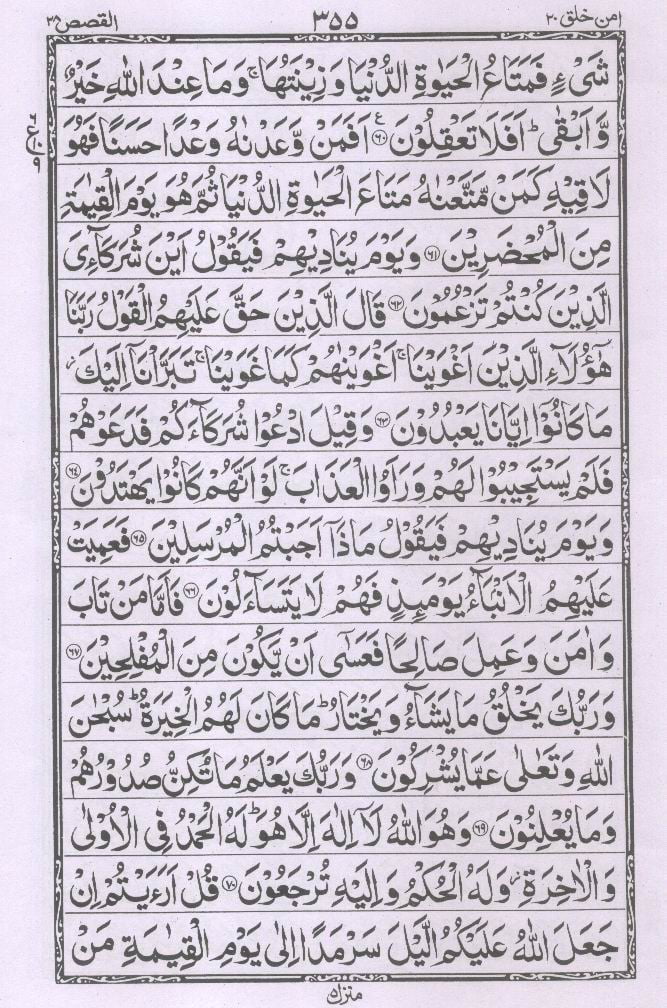 امن خلق ٢٠ ٣٥٥ القصص ٢٨
شَیْءٍ فَمَتَاعُ الْحَیٰوةِ الدُّنْیَا وَ زِیْنَتُهَا ۚ وَ مَا عِنْدَ اللّٰهِ خَیْرٌ
وَّ اَبْقٰی ؕ اَفَلَا تَعْقِلُوْنَ ﴿٦٠﴾ ع اَفَمَنْ وَّعَدْنٰهُ وَعْدًا حَسَنًا فَهُوَ
لَاقِیْهِ كَمَنْ مَّتَّعْنٰهُ مَتَاعَ الْحَیٰوةِ الدُّنْیَا ثُمَّ هُوَ یَوْمَ الْقِیٰمَةِ
مِنَ الْمُحْضَرِیْنَ ﴿٦١﴾ وَ یَوْمَ یُنَادِیْهِمْ فَیَقُوْلُ اَیْنَ شُرَكَآءِیَ
الَّذِیْنَ كُنْتُمْ تَزْعُمُوْنَ ﴿٦٢﴾ قَالَ الَّذِیْنَ حَقَّ عَلَیْهِمُ الْقَوْلُ رَبَّنَا
هٰۤؤُلَآءِ الَّذِیْنَ اَغْوَیْنَا ۚ اَغْوَیْنٰهُمْ كَمَا غَوَیْنَا ۚ تَبَرَّاْنَاۤ اِلَیْكَ ؗ
مَا كَانُوْۤا اِیَّانَا یَعْبُدُوْنَ ﴿٦٣﴾ وَ قِیْلَ ادْعُوْا شُرَكَآءَكُمْ فَدَعَوْهُمْ
فَلَمْ یَسْتَجِیْبُوْا لَهُمْ وَ رَاَوُا الْعَذَابَ ۚ لَوْ اَنَّهُمْ كَانُوْا یَهْتَدُوْنَ ﴿٦٤﴾
وَ یَوْمَ یُنَادِیْهِمْ فَیَقُوْلُ مَاذَاۤ اَجَبْتُمُ الْمُرْسَلِیْنَ ﴿٦٥﴾ فَعَمِیَتْ
عَلَیْهِمُ الْاَنْۢبَآءُ یَوْمَىِٕذٍ فَهُمْ لَا یَتَسَآءَلُوْنَ ﴿٦٦﴾ فَاَمَّا مَنْ تَابَ
وَ اٰمَنَ وَ عَمِلَ صَالِحًا فَعَسٰۤی اَنْ یَّكُوْنَ مِنَ الْمُفْلِحِیْنَ ﴿٦٧﴾
وَ رَبُّكَ یَخْلُقُ مَا یَشَآءُ وَ یَخْتَارُ ؕ مَا كَانَ لَهُمُ الْخِیَرَةُ ؕ سُبْحٰنَ
اللّٰهِ وَ تَعٰلٰی عَمَّا یُشْرِكُوْنَ ﴿٦٨﴾ وَ رَبُّكَ یَعْلَمُ مَا تُكِنُّ صُدُوْرُهُمْ
وَ مَا یُعْلِنُوْنَ ﴿٦٩﴾ وَ هُوَ اللّٰهُ لَاۤ اِلٰهَ اِلَّا هُوَ ؕ لَهُ الْحَمْدُ فِی الْاُوْلٰی
وَ الْاٰخِرَةِ ؗ وَ لَهُ الْحُكْمُ وَ اِلَیْهِ تُرْجَعُوْنَ ﴿٧٠﴾ قُلْ اَرَءَیْتُمْ اِنْ
جَعَلَ اللّٰهُ عَلَیْكُمُ الَّیْلَ سَرْمَدًا اِلٰی یَوْمِ الْقِیٰمَةِ مَنْ
منزل ٥